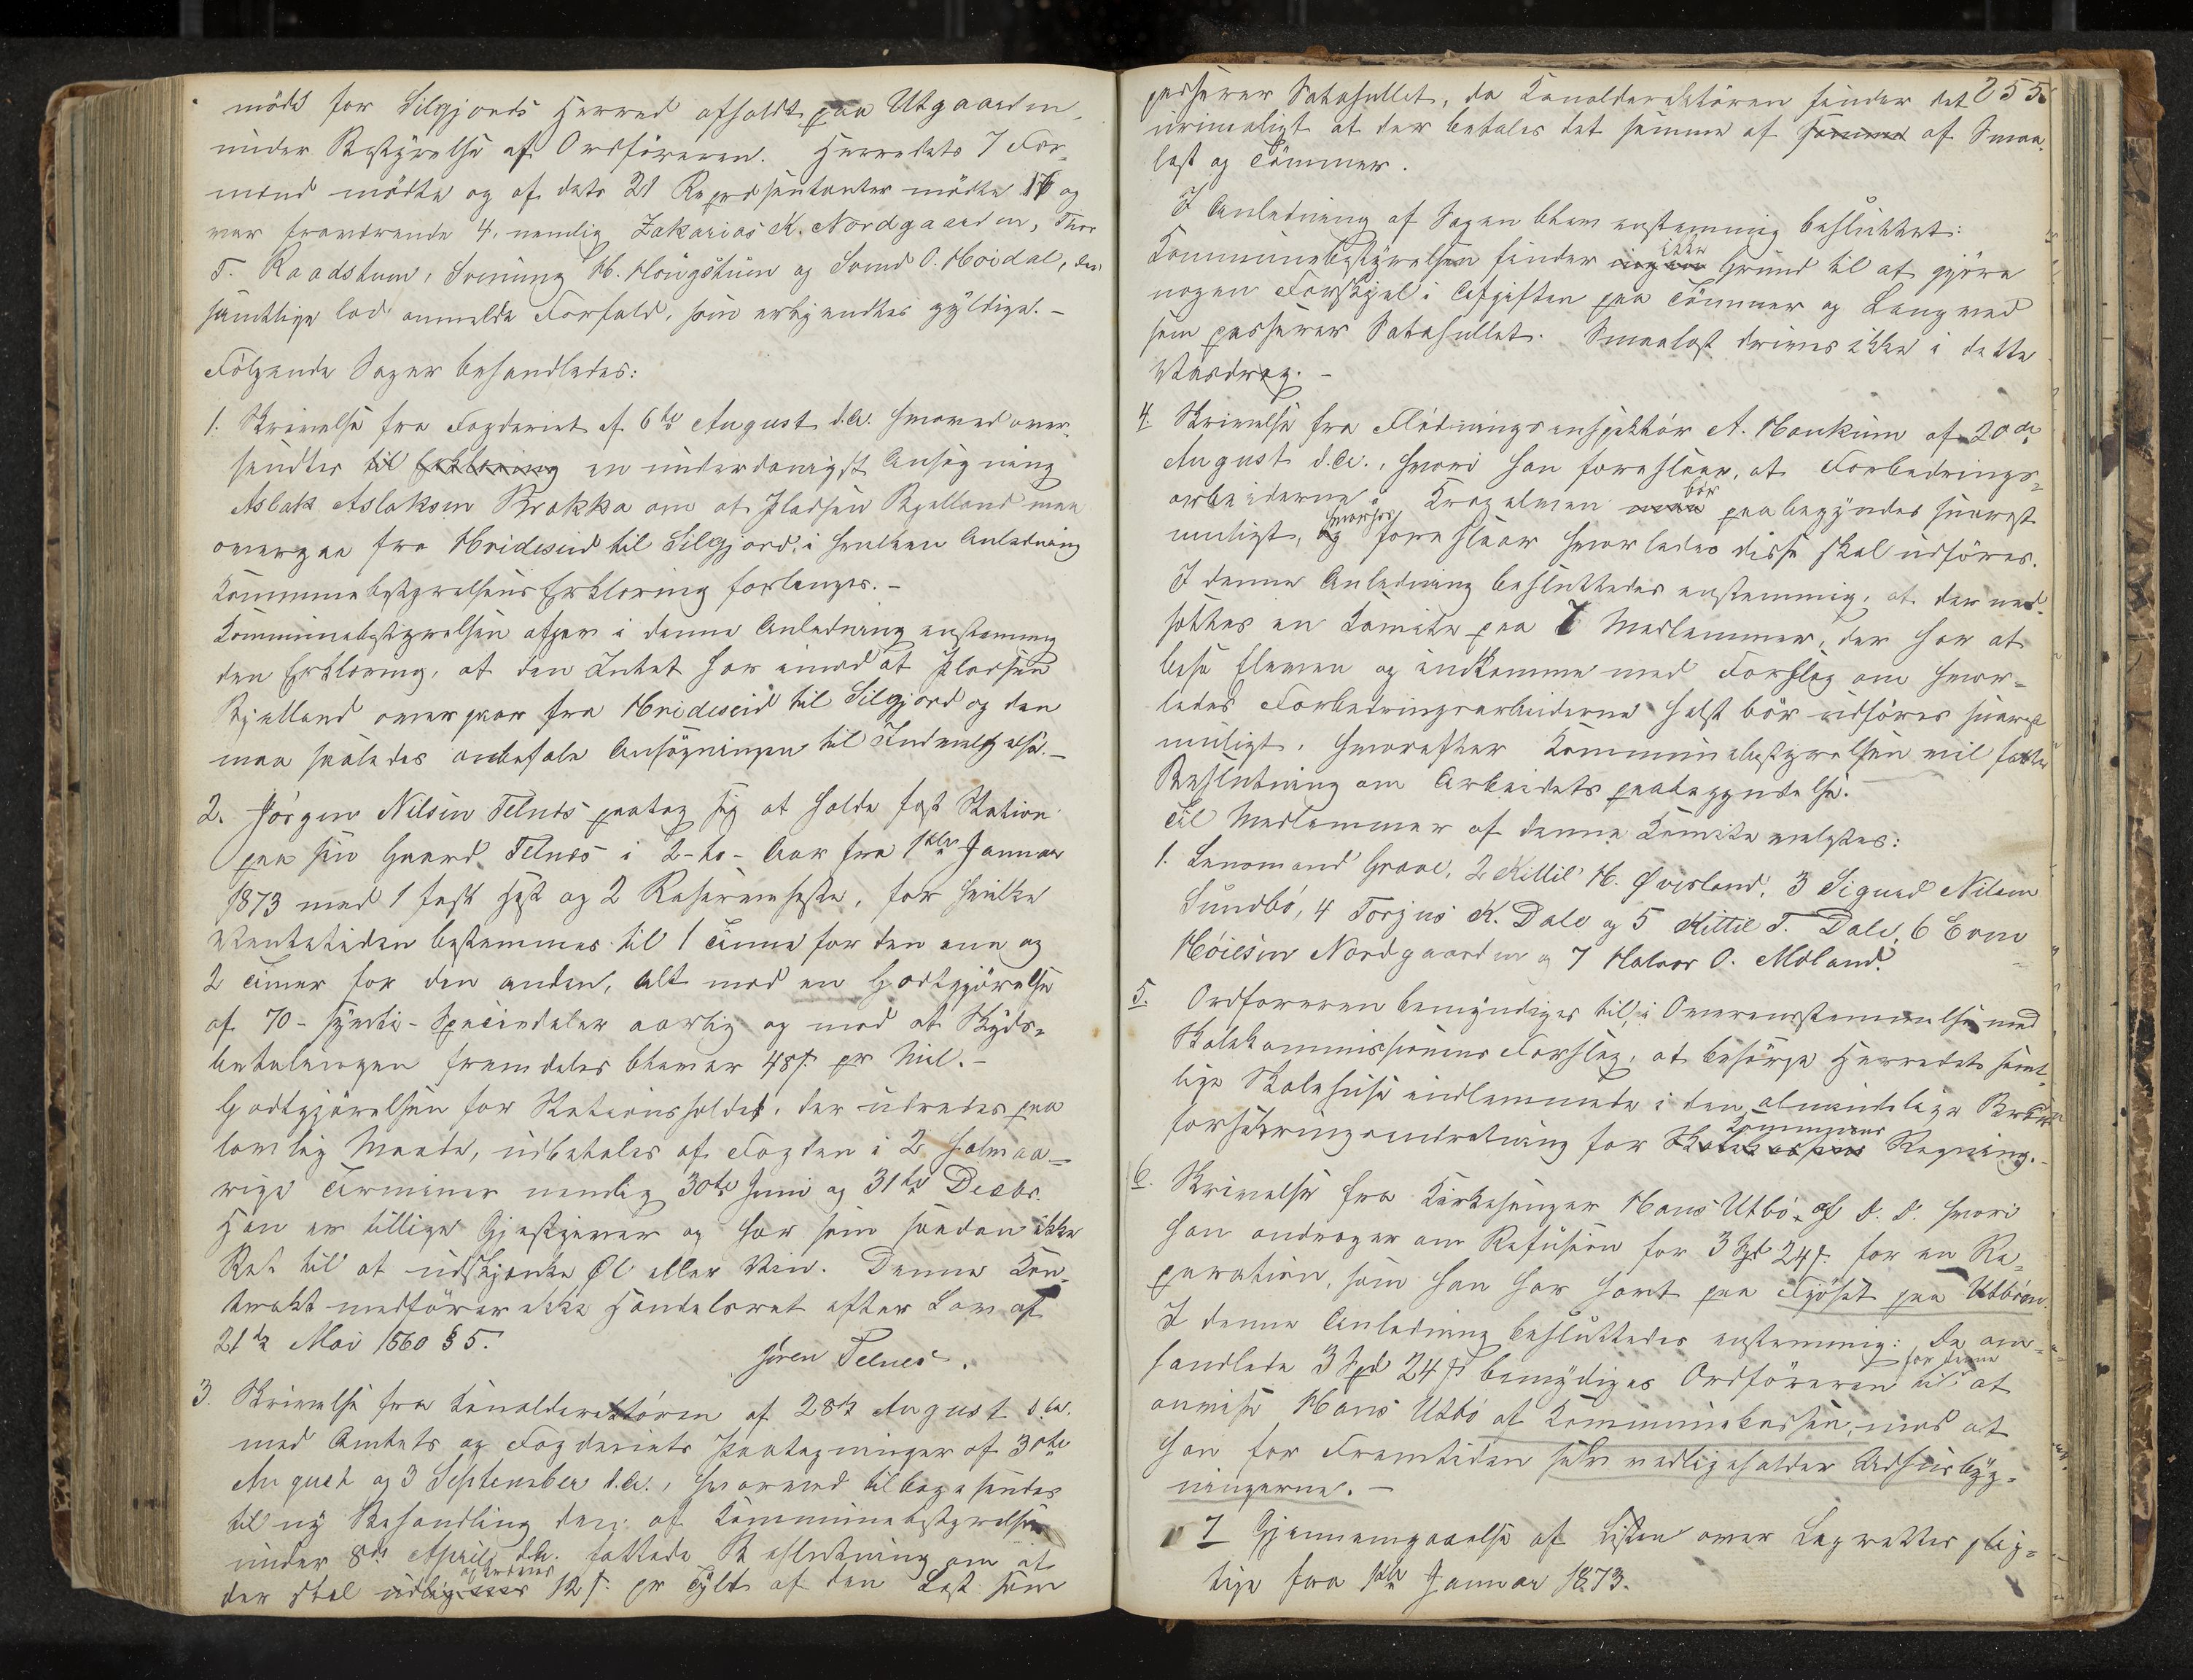 mödt for Siljords Herred afholdt paa Utgaarden
under Bestyrelse af Ordföreren. Herredets 7 For-
mænd mödte og af dets 21 Repræsentanter mödte 17 og
var fraværende 4, nemlig Zakarias K. Nordgaarden, Thor
T. Raadstum, Sveinung H. Hougstum og Svend O. Höidal, der
samtlige lod anmelde Forfald, som erkjendtes gyldige. –
Fölgende Sager behandledes:
1. Skrivelse fra Fogderiet af 6te August d.A. hvorved over-
sendtes til Erklæring en underdanigst Ansögning
Aslak Aslaksen Brokka om at Pladsen Kjelland maa
overgaa fra Hvideseid til Siljord, i hvilken Anledning
Kommunebestyrelsens Erklæring forlanges. –
Kommunebestyrelsen afgav i denne Anledning enstemmig
den Erklæring, at den Intet har imod at Pladsen
Kjelland overgaar fra Hvideseid til Siljord og den
maa saaledes anbefale Ansögningen til Indvilgelse. –
2. Jörgen Nilsen Telnes paatog sig at holde fast Station
paa sin Gaard Telnes i 2-to- Aar fra 1ste Januar
1873 med 1 fast Hest og 2 Reserveheste, for hvilke
Ventetiden bestemmes til 1 Time for den ene og
2 Timer for den anden, alt mod en Godtgjörelse
af 70 - sytti - Speciedaler aarlig og mod at Skyds-
betalingen fremdeles bliver 48 s. pr Mil. –
Godtgjörelsen for Stationsholdet, der udredes paa
lovlig Maade, udbetales af Fogden i 2 halvaa-
rige Terminer nemlig 30te Juni og 31te Decbr.
Han er tillige Gjæstgiver og har som saadan ikke
Ret til at udskjænke Öl eller Vin. Denne Kon-
trakt medförer ikke Handelsret efter Lov af
21de Mai 1860 § 5.
Jören Telnes.
3. Skrivelse fra Kanaldirektören af 28de August d.A.
med Amtets og Fogderiets Paategninger af 30te
August og 3 September d.A., hvorved tilbagesendes
til ny Behandling den af Kommunebestyrelsen
under 8de April d.A. fattede Beslutning om at
der skal udlignes 12 s. pr Tylt af den Last som
255
passerer Satafallet, da Kanaldirektören finder det
urimeligt at der betales det samme af samme af Smaa-
last og Tömmer.
I Anledning af Sagen blev enstemmig besluttet:
Kommunebestyrelsen finder ingen ikke Grund til at gjöre
nogen Forskjel i Afgiften paa Tömmer og Langved
som passerer Satafallet. Smaalast drives ikke i dette
Vasdrag. –
4 Skrivelse fra Flödningsinspektör A. Haukum af 20de
August d.A., hvori han foreslaar, at Forbedrings-
arbeiderne i Kragelven maa bör paabegyndes snarest
muligt, og hvorhos foreslaar hvorledes disse skal udföres.
I denne Anledning besluttedes enstemmig, at der ned-
sættes en Komite paa 7 Medlemmer, der har at
bese Elven og indkomme med Forslag om hvor-
ledes Forbedringsarbeiderne helst bör udföres snarest
muligt, hvorefter Kommunebestyrelsen vil fatte
Beslutning om Arbeidets paabegyndelse.
Til Medlemmer af denne Komite valgtes:
1. Lensmand Grave, 2 Kittil H. Øverland, 3 Sigurd Nilsen
Sundbö, 4 Torjus K. Dale og 5 Kittil T. Dale, 6 Even
Höiesen Nordgaarden og 7 Halvor O. Moland.
5. Ordföreren bemyndiges til, i Overensstemmelse med
Skolekommissionens Forslag, at besörge Herredets samt-
lige Skolehuse indlemmede i den almindelige Brand-
forsikringsindretning for Skolekassens Kommunens Regning. –
6. Skrivelse fra Kirkesanger Hans Utbö af d. D. hvori
han andrager om Refusion for 3 Spd 24 s. for en Re-
paration, som han har havt paa Fjöset paa Utböen.
I denne Anledning besluttedes enstemmig: De om-
handlede 3 Spd 24 s. bemyndiges Ordföreren for denne til at
anvise Hans Utbö af Kommunekassen, mod at
han for Fremtiden selv vedligeholder Udhusbyg-
ningerne. –
7 Gjennemgaaelse af Listen over Lagrettespligt-
tige fra 1ste Januar 1873.